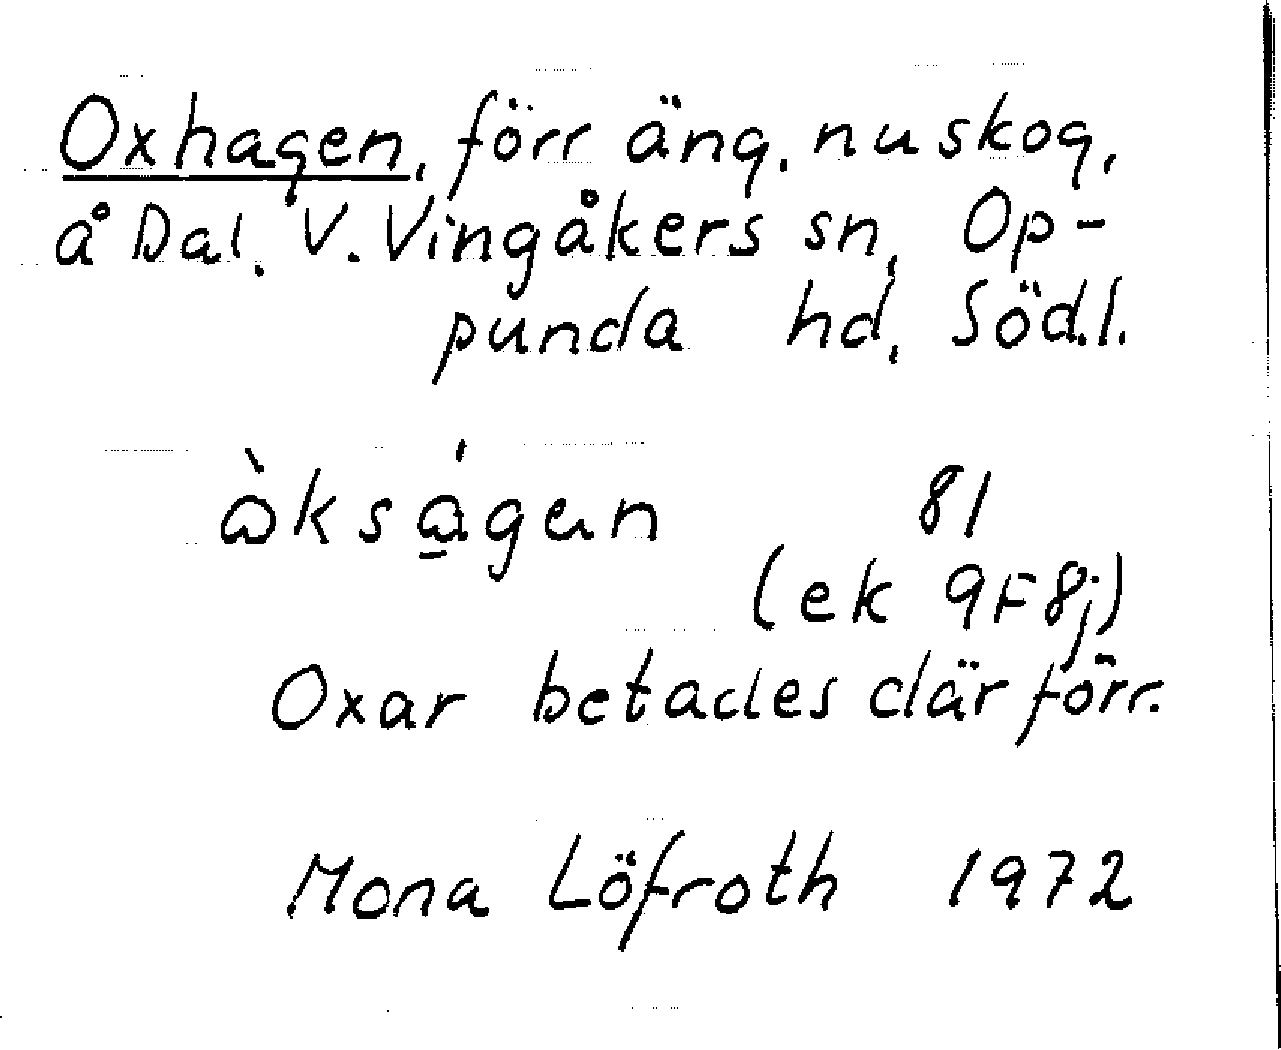 Oxhagen, förr äng, nu skog,
å Dal, V. Vingåkers sn, Op-
punda hd, Södl.
81
(ek 9F8j)
Oxar betades där förr.
Mona Löfroth 1972